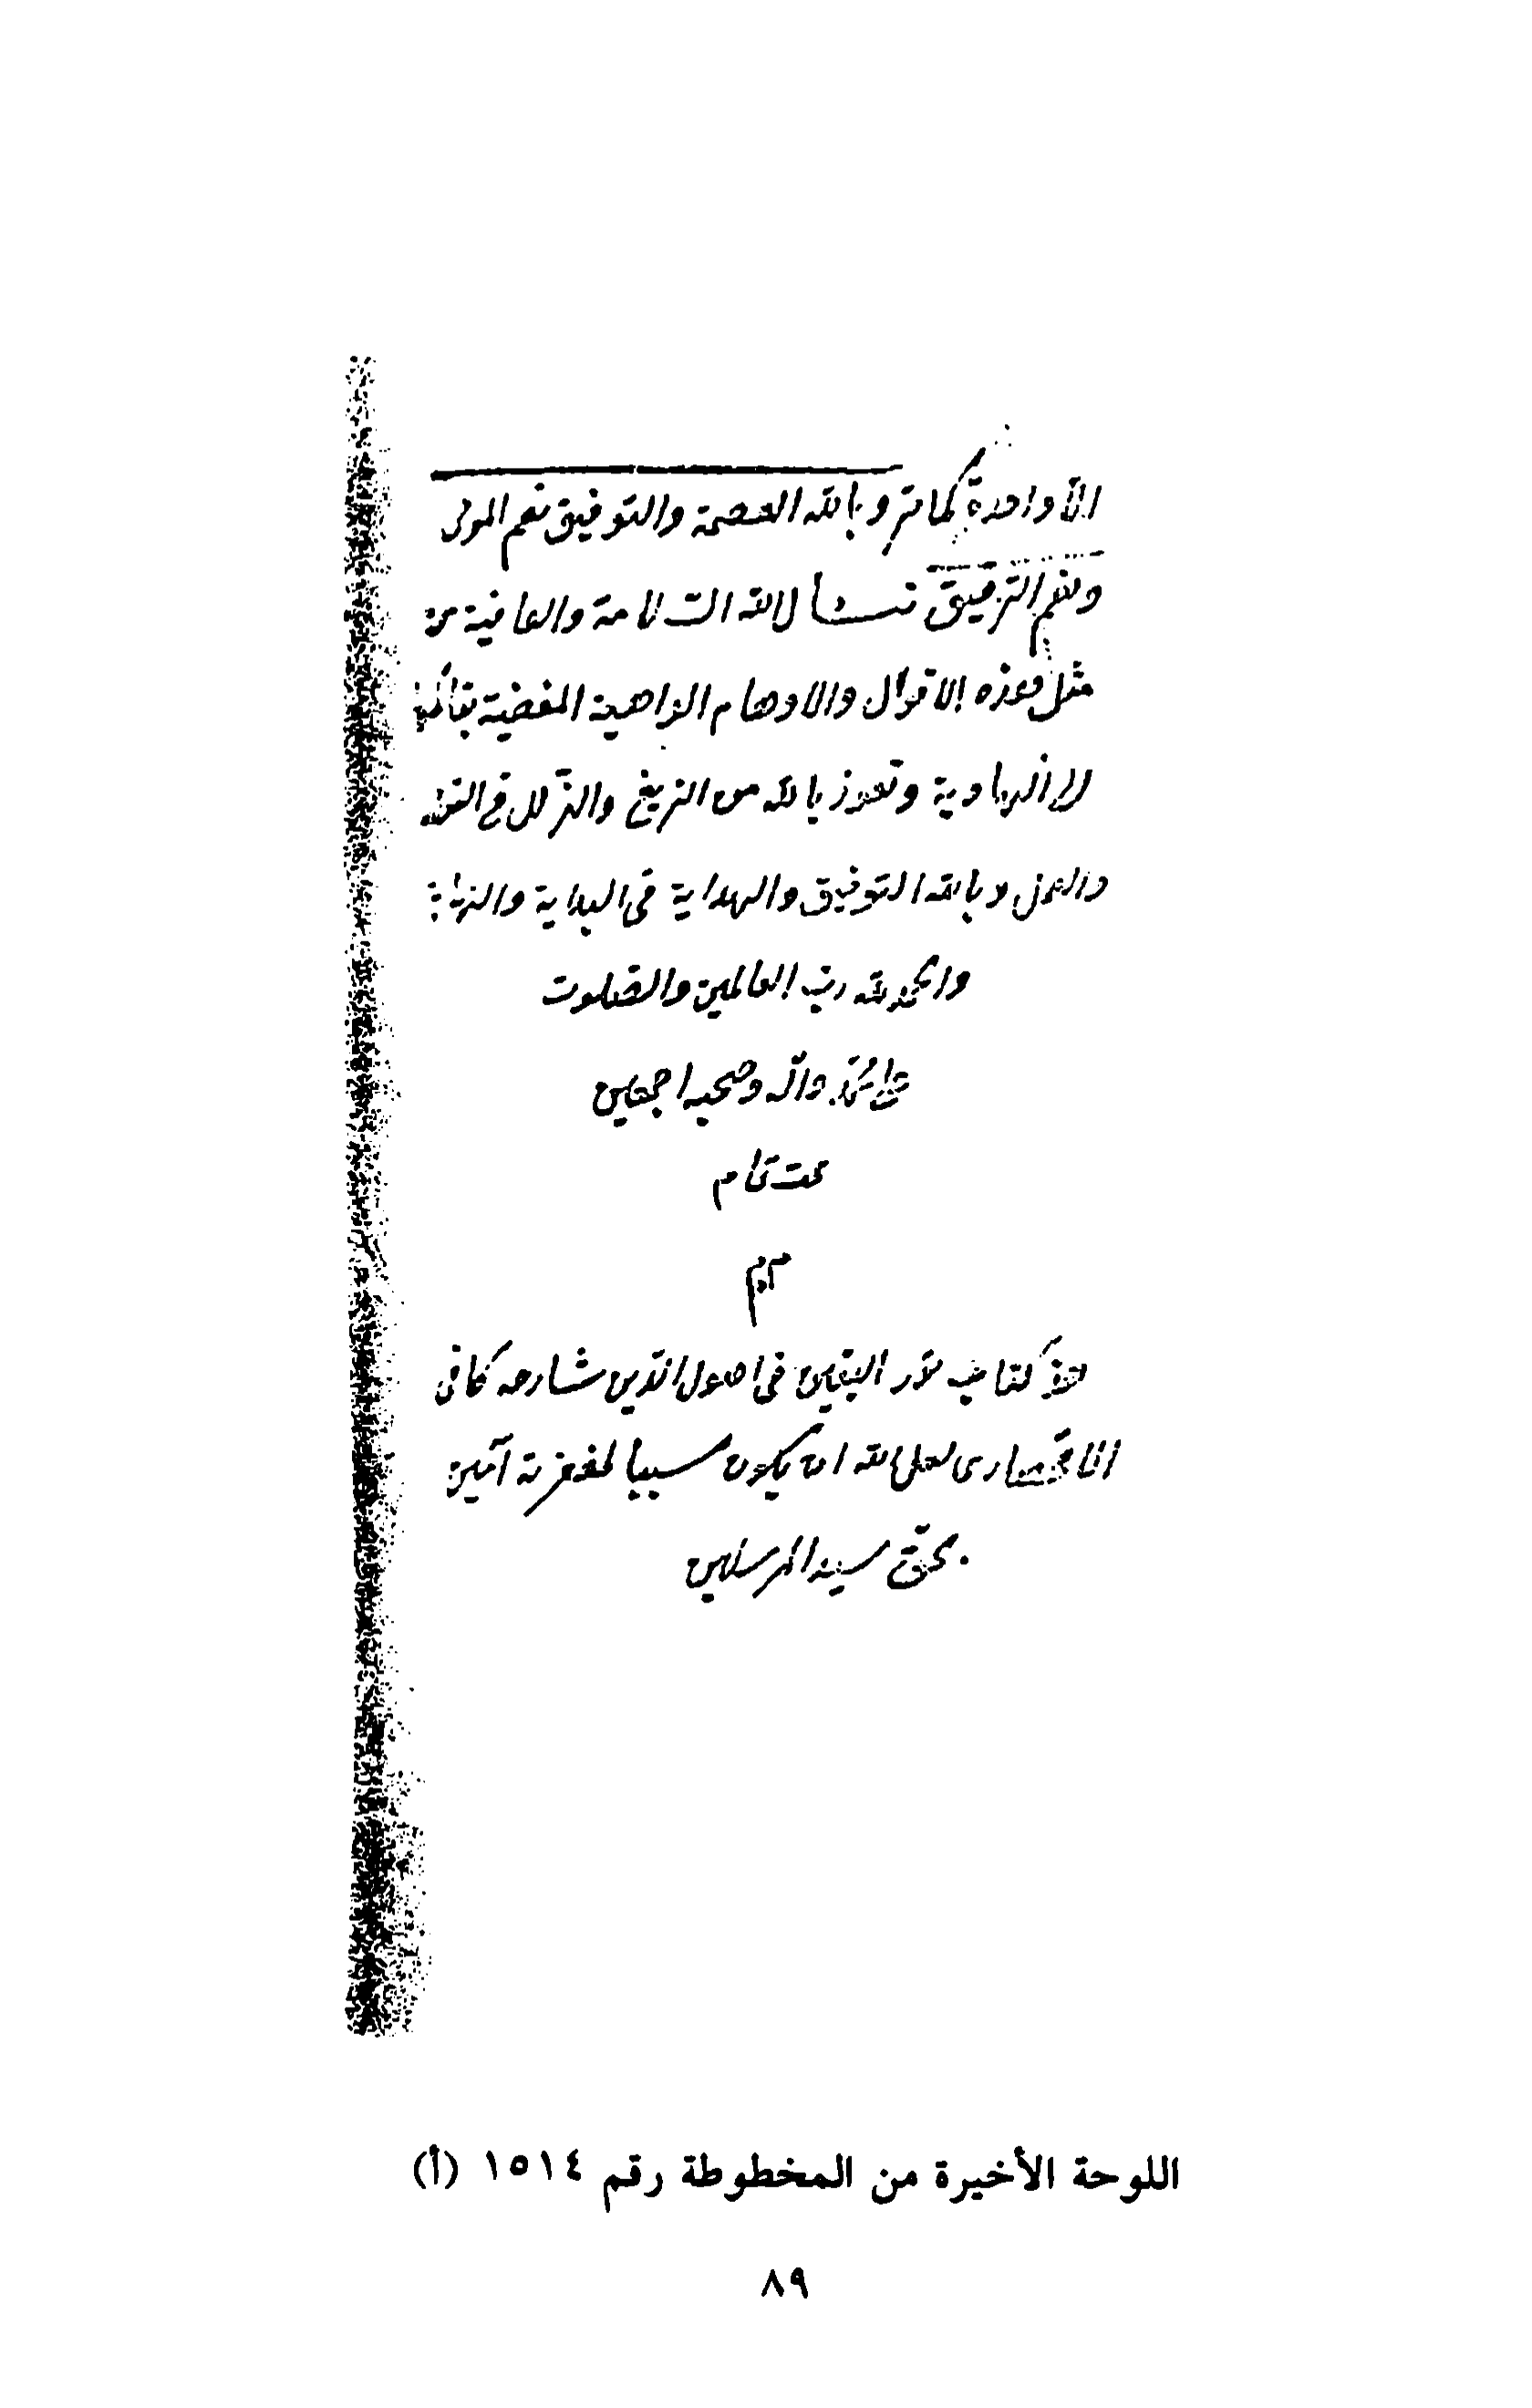 الا واحدة كما مر وبالله العصمة والتوفيق نعم المولى
ونعم الرفيق نسأل الله السلامة والعافية من
مثل هذه الاقوال والاوهام الواهية المفضية بقائلها
الى الهاوية ونعوذ بالله من الزيغ والزلل في القول
والعمل وبالله التوفيق والهداية في البداية والنهاية
والحمد لله رب العالمين والصلوت
على محمد وآله وصحبه اجمعين
تمت تمام
م
كتاب نور اليقين في اصول الدين شارحه كافي
الاقحصارى لعل الله ان يكون سببا لمغفرته آمين
بحق سيد المرسلين
اللوحة الأخيرة من المخطوطة رقم ١٥١٤ (أ)
٨٩